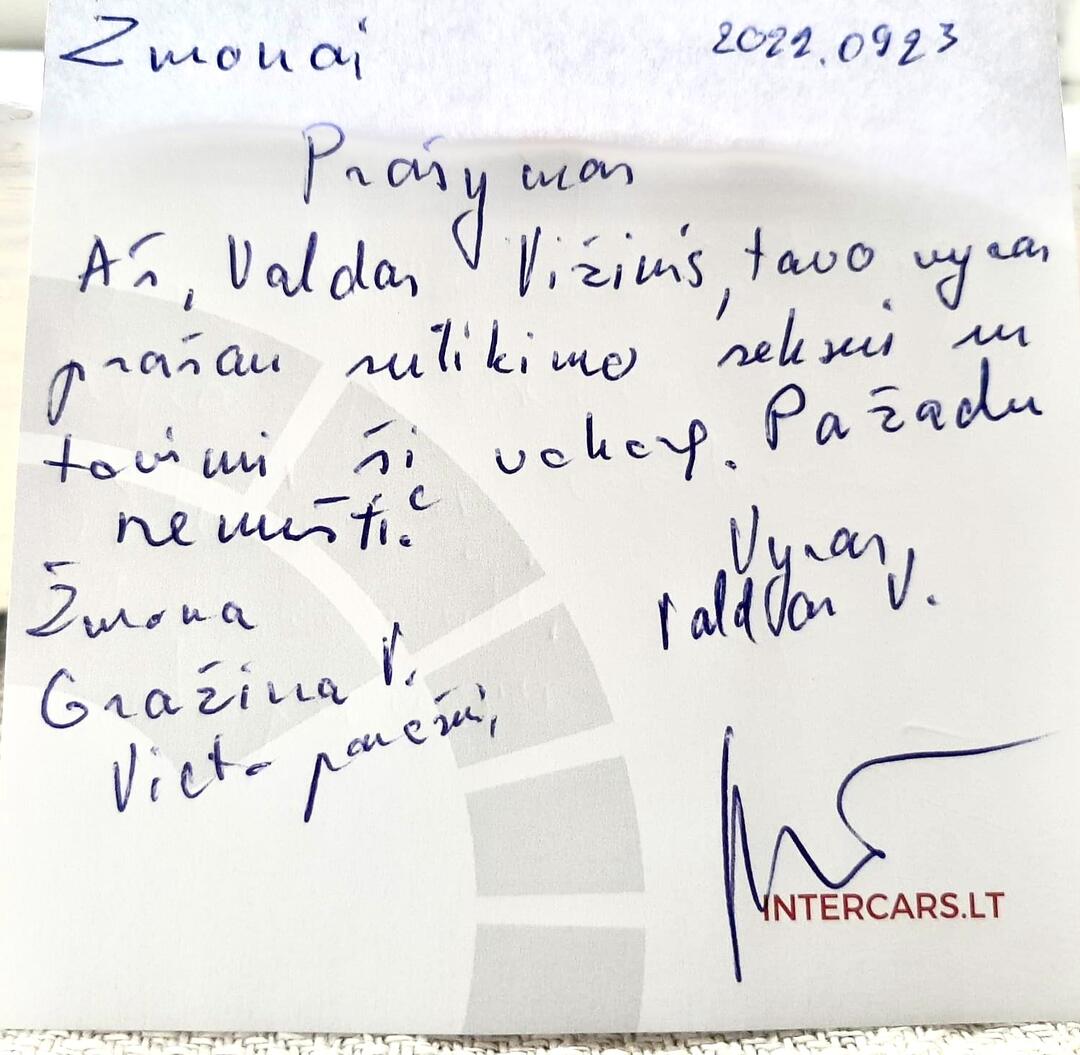 Žmonai 2022.0923
Prašymas
Aš, Valdas Vižinis, tavo vyras
prašau sutikimo seksui su
tavimi šį vakarą. Pažadu
nemušti.
Vyras,
Valdas V.
Žmona
Gražina V.
Vieta parašui,
INTERCARS.LT